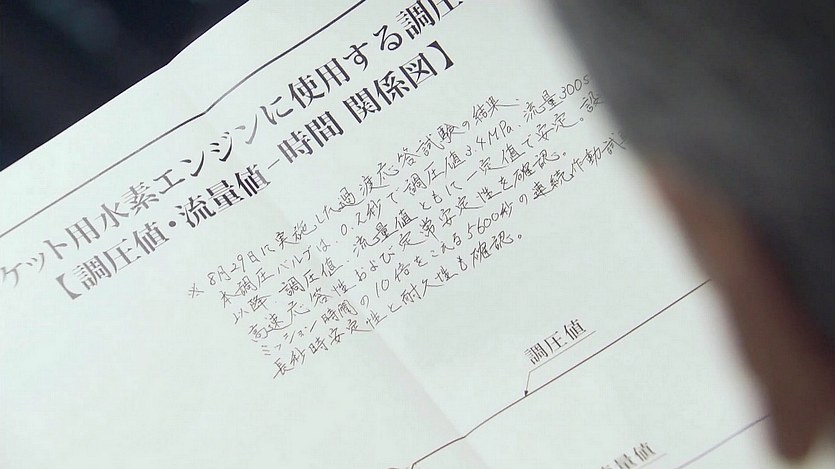 ケット用水素エンジンに使用する調圧
【調圧値・流量値-時間 関係図】
※8月29日に実施した過渡応答試験の結果、
本調圧バルブは、0.2秒で調圧値3.4MPa、流量300
以降、調圧値、流量値ともに一定値で安定。設
高速応答性および定常安定性を確認。
ミッション時間の10倍をこえる5600秒の連続作動試
長秒時安定性と耐久性も確認。
調圧値
流量値